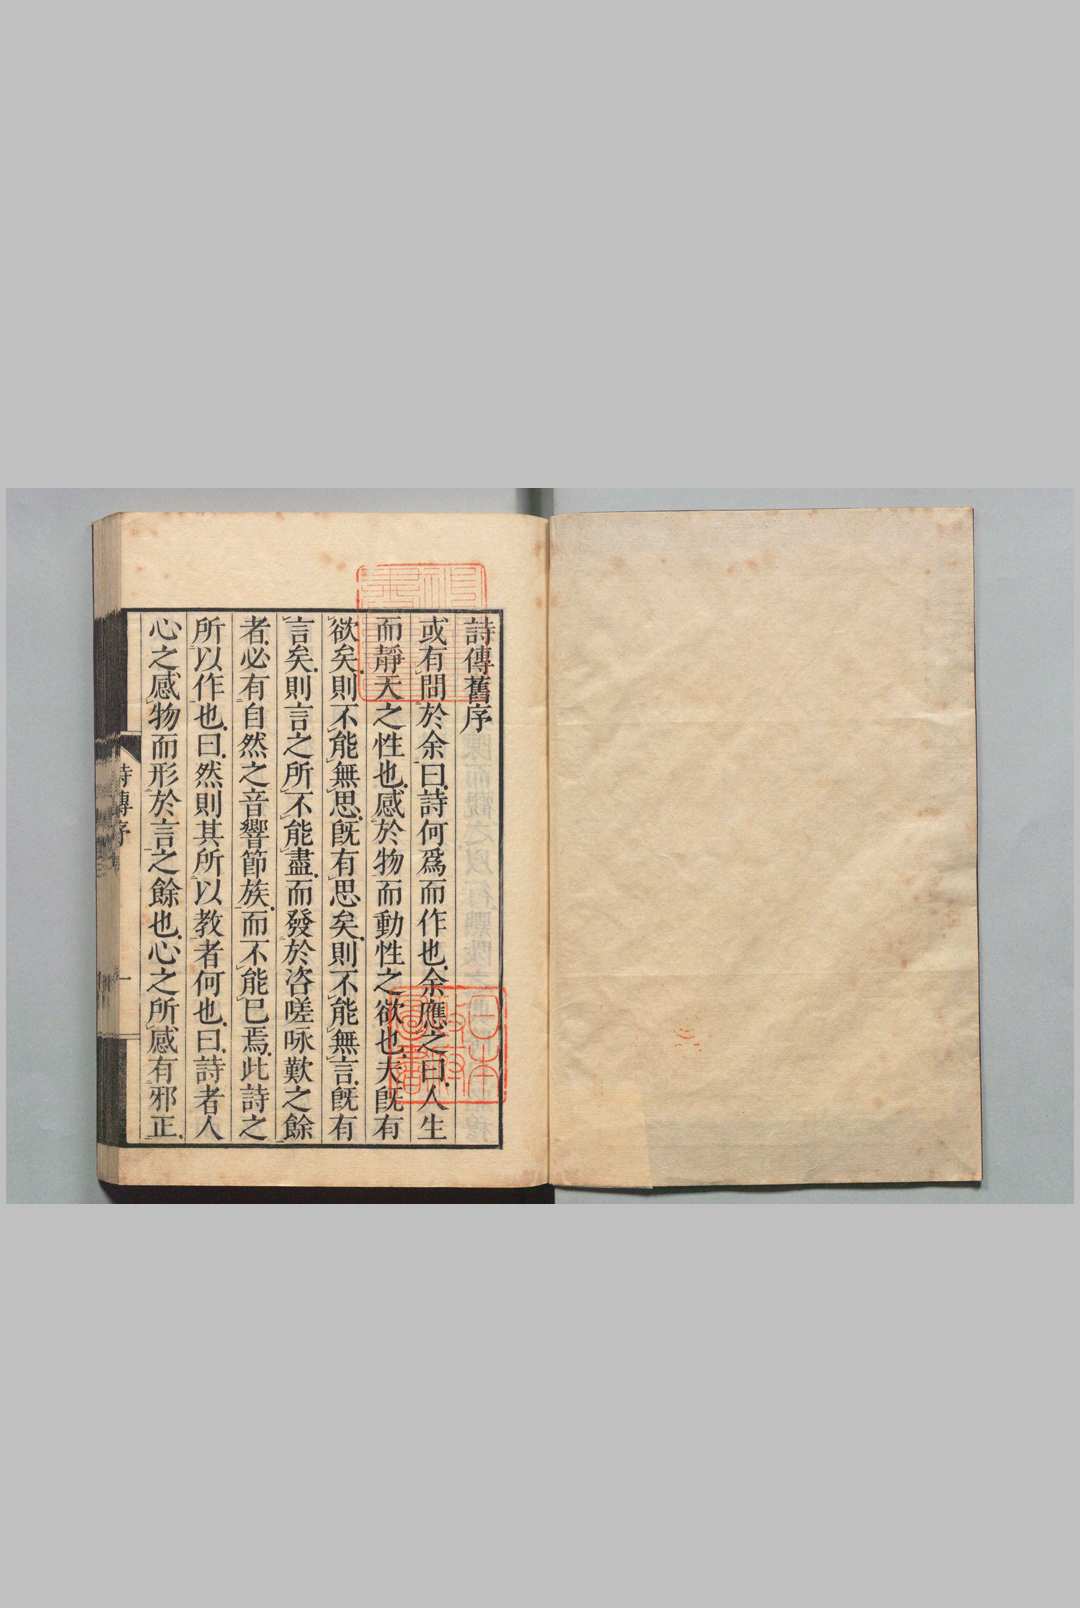 詩傳舊序
或有問於余曰詩何爲而作也余應之曰人生
而靜天之性也感於物而動性之欲也夫既有
欲矣則不能無思既有思矣則不能無言既有
言矣則言之所不能盡而發於咨嗟咏歎之餘
者必有自然之音響節族而不能已焉此詩之
所以作也曰然則其所以教者何也曰詩者人
心之感物而形於言之餘也心之所感有邪正
詩傳序
一
日本
政府
圖書